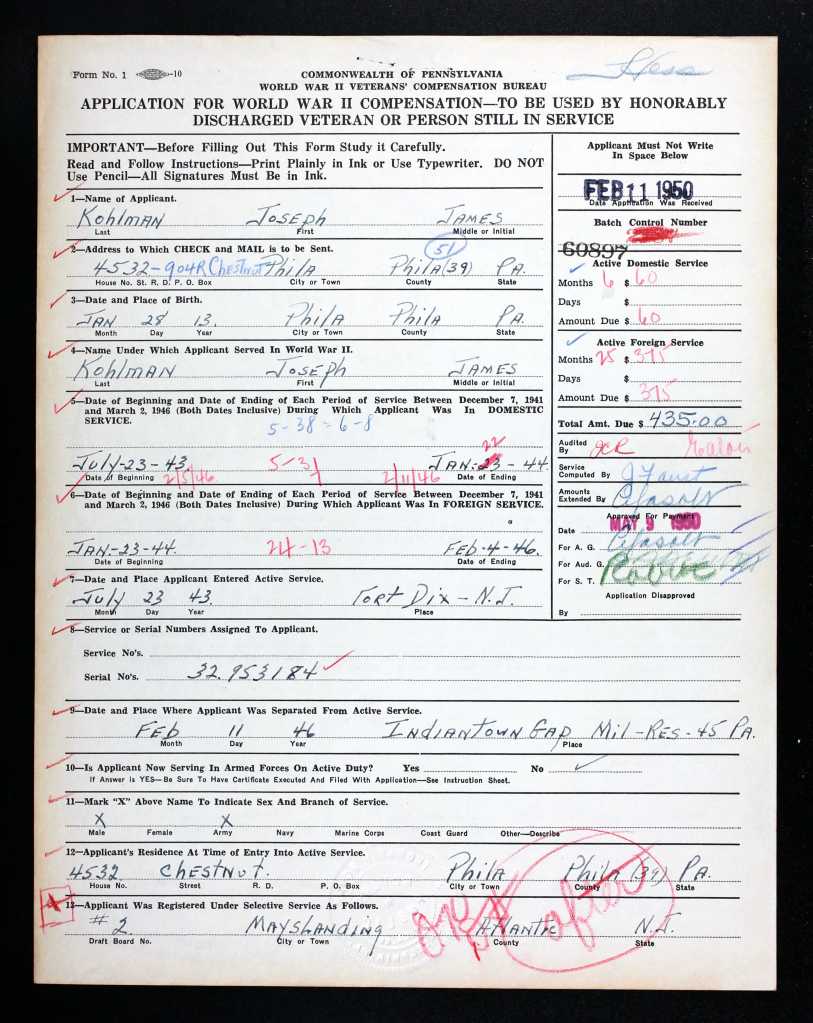 Form No. 1 -10
Hess
COMMONWEALTH OF PENNSYLVANIA
WORLD WAR II VETERANS' COMPENSATION BUREAU
APPLICATION FOR WORLD WAR II COMPENSATION—TO BE USED BY HONORABLY
DISCHARGED VETERAN OR PERSON STILL IN SERVICE
IMPORTANT—Before Filling Out This Form Study it Carefully.
Read and Follow Instructions—Print Plainly in Ink or Use Typewriter. DO NOT
Use Pencil—All Signatures Must Be in Ink.
1—Name of Applicant.
Kohlman Joseph James
Last First Middle or Initial
2—Address to Which CHECK and MAIL is to be Sent.
51
4532-904R Chestnut Phila Phila (39) Pa.
House No. St. R. D. P. O. Box City or Town County State
3—Date and Place of Birth.
Jan 28 13. Phila Phila Pa.
Month Day Year City or Town County State
4—Name Under Which Applicant Served In World War II.
Kohlman Joseph James
Last First Middle or Initial
5—Date of Beginning and Date of Ending of Each Period of Service Between December 7, 1941
and March 2, 1946 (Both Dates Inclusive) During Which Applicant Was In DOMESTIC
SERVICE.
5-38 = 6-8
22
July-23-43 5-31 Jan-23-44
Date of Beginning Date of Ending
2/5/46 2/11/46
6—Date of Beginning and Date of Ending of Each Period of Service Between December 7, 1941
and March 2, 1946 (Both Dates Inclusive) During Which Applicant Was In FOREIGN SERVICE.
Jan-23-44. 24-13 Feb-4-46.
Date of Beginning Date of Ending
7—Date and Place Applicant Entered Active Service.
July 23 43 Fort Dix-N.J.
Month Day Year Place
8—Service or Serial Numbers Assigned To Applicant.
Service No's.
Serial No's. 32.953184
9—Date and Place Where Applicant Was Separated From Active Service.
Feb 11 46 Indiantown Gap Mil-Res-45 Pa.
Month Day Year Place
10—Is Applicant Now Serving In Armed Forces On Active Duty? Yes No ✓
If Answer is YES—Be Sure To Have Certificate Executed And Filed With Application—See Instruction Sheet.
11—Mark "X" Above Name To Indicate Sex And Branch of Service.
X X
Male Female Army Navy Marine Corps Coast Guard Other—Describe
12—Applicant's Residence At Time of Entry Into Active Service.
4532 Chestnut. Phila Phila (39) Pa.
House No. Street R. D. P. O. Box City or Town County State
13—Applicant Was Registered Under Selective Service As Follows.
#2 Mayslanding Atlantic N.J.
Draft Board No. City or Town County State
after
Applicant Must Not Write
In Space Below
FEB 11 1950
Date Application Was Received
Batch Control Number
60897
Active Domestic Service
Months 6 $ 60
Days $
Amount Due $ 60
Active Foreign Service
Months 25 $ 375
Days $
Amount Due $ 375
Total Amt. Due $ 435.00
Audited
By
Service
Computed By J Faust
Amounts
Extended By
Approved For Payment
Date MAY 9 1950
For A. G.
For Aud. G.
For S. T.
Application Disapproved
By